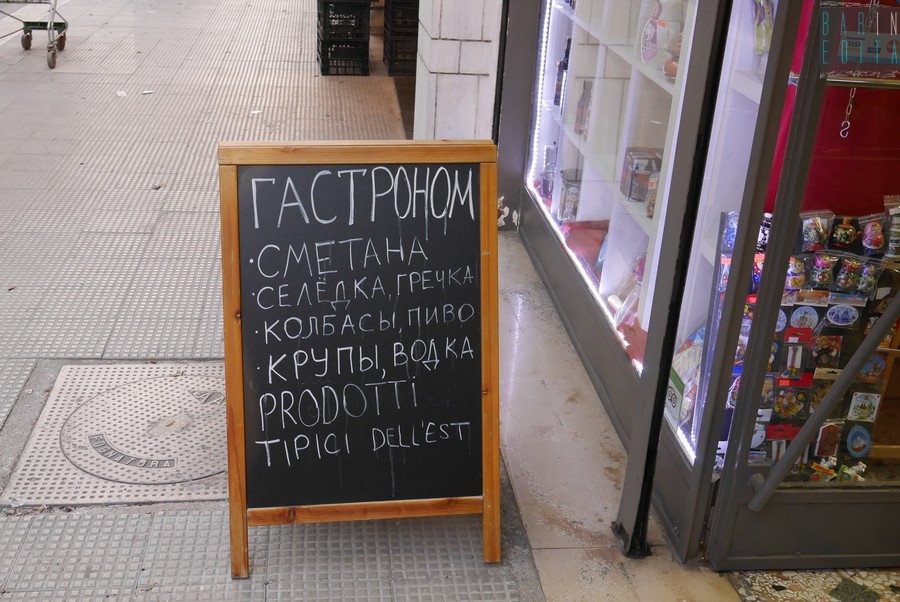 ГАСТРОНОМ
·СМЕТАНА
·СЕЛЁДКА, ГРЕЧКА
·КОЛБАСЫ, ПИВО
·КРУПЫ, ВОДКА
PRODOTTi
TIPICI DELL'EST
BARINEDITA